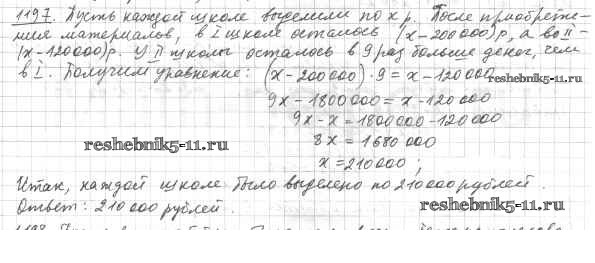 1197. Пусть каждой школе выделили по x р. После приобрете-
ния материалов, в I школе осталось (x-200000)р, а во II -
(x-120000)р. У II школы осталось в 9 раз больше денег, чем
в I. Получим уравнение: (x-200000)·9=x-120000
9x-1800000=x-120000
9x-x=1800000-120000
reshebnik5-11.ru
8x=1680000
x=210000;
Итак, каждой школе было выделено по 210000 рублей.
Ответ: 210000 рублей.
reshebnik5-11.ru